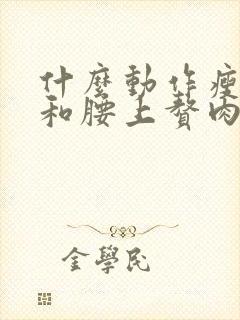 什麼動作瘦
和腰上贅肉
金學民